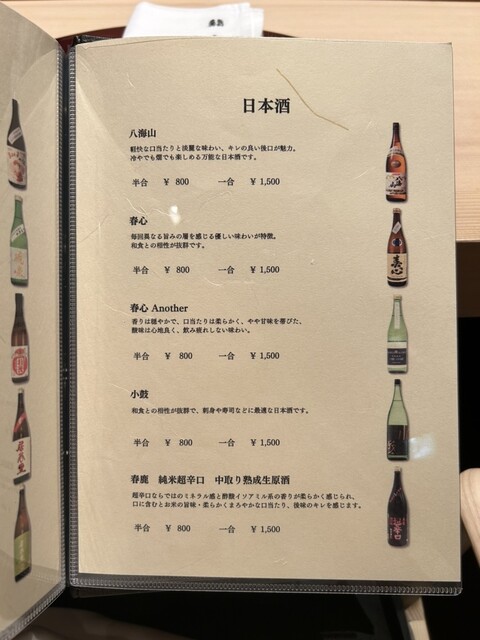 日本酒
八海山
軽快な口当たりと淡麗な味わい、キレの良い後口が魅力。
冷やでも燗でも楽しめる万能な日本酒です。
半合 ¥ 800 一合 ¥ 1,500
春心
毎回異なる旨みの層を感じる優しい味わいが特徴。
和食との相性が抜群です。
半合 ¥ 800 一合 ¥ 1,500
春心 Another
香りは穏やかで、口当たりは柔らかく、やや甘味を帯びた、
酸味は心地良く、飲み疲れしない味わい。
半合 ¥ 800 一合 ¥ 1,500
小鼓
和食との相性が抜群で、刺身や寿司などに最適な日本酒です。
半合 ¥ 800 一合 ¥ 1,500
春鹿 純米超辛口 中取り熟成生原酒
超辛口ならではのミネラル感と酢酸イソアミル系の香りが柔らかく感じられ、
口に含むとお米の旨味・柔らかくまろやかな口当たり、後味のキレを感じます。
半合 ¥ 800 一合 ¥ 1,500